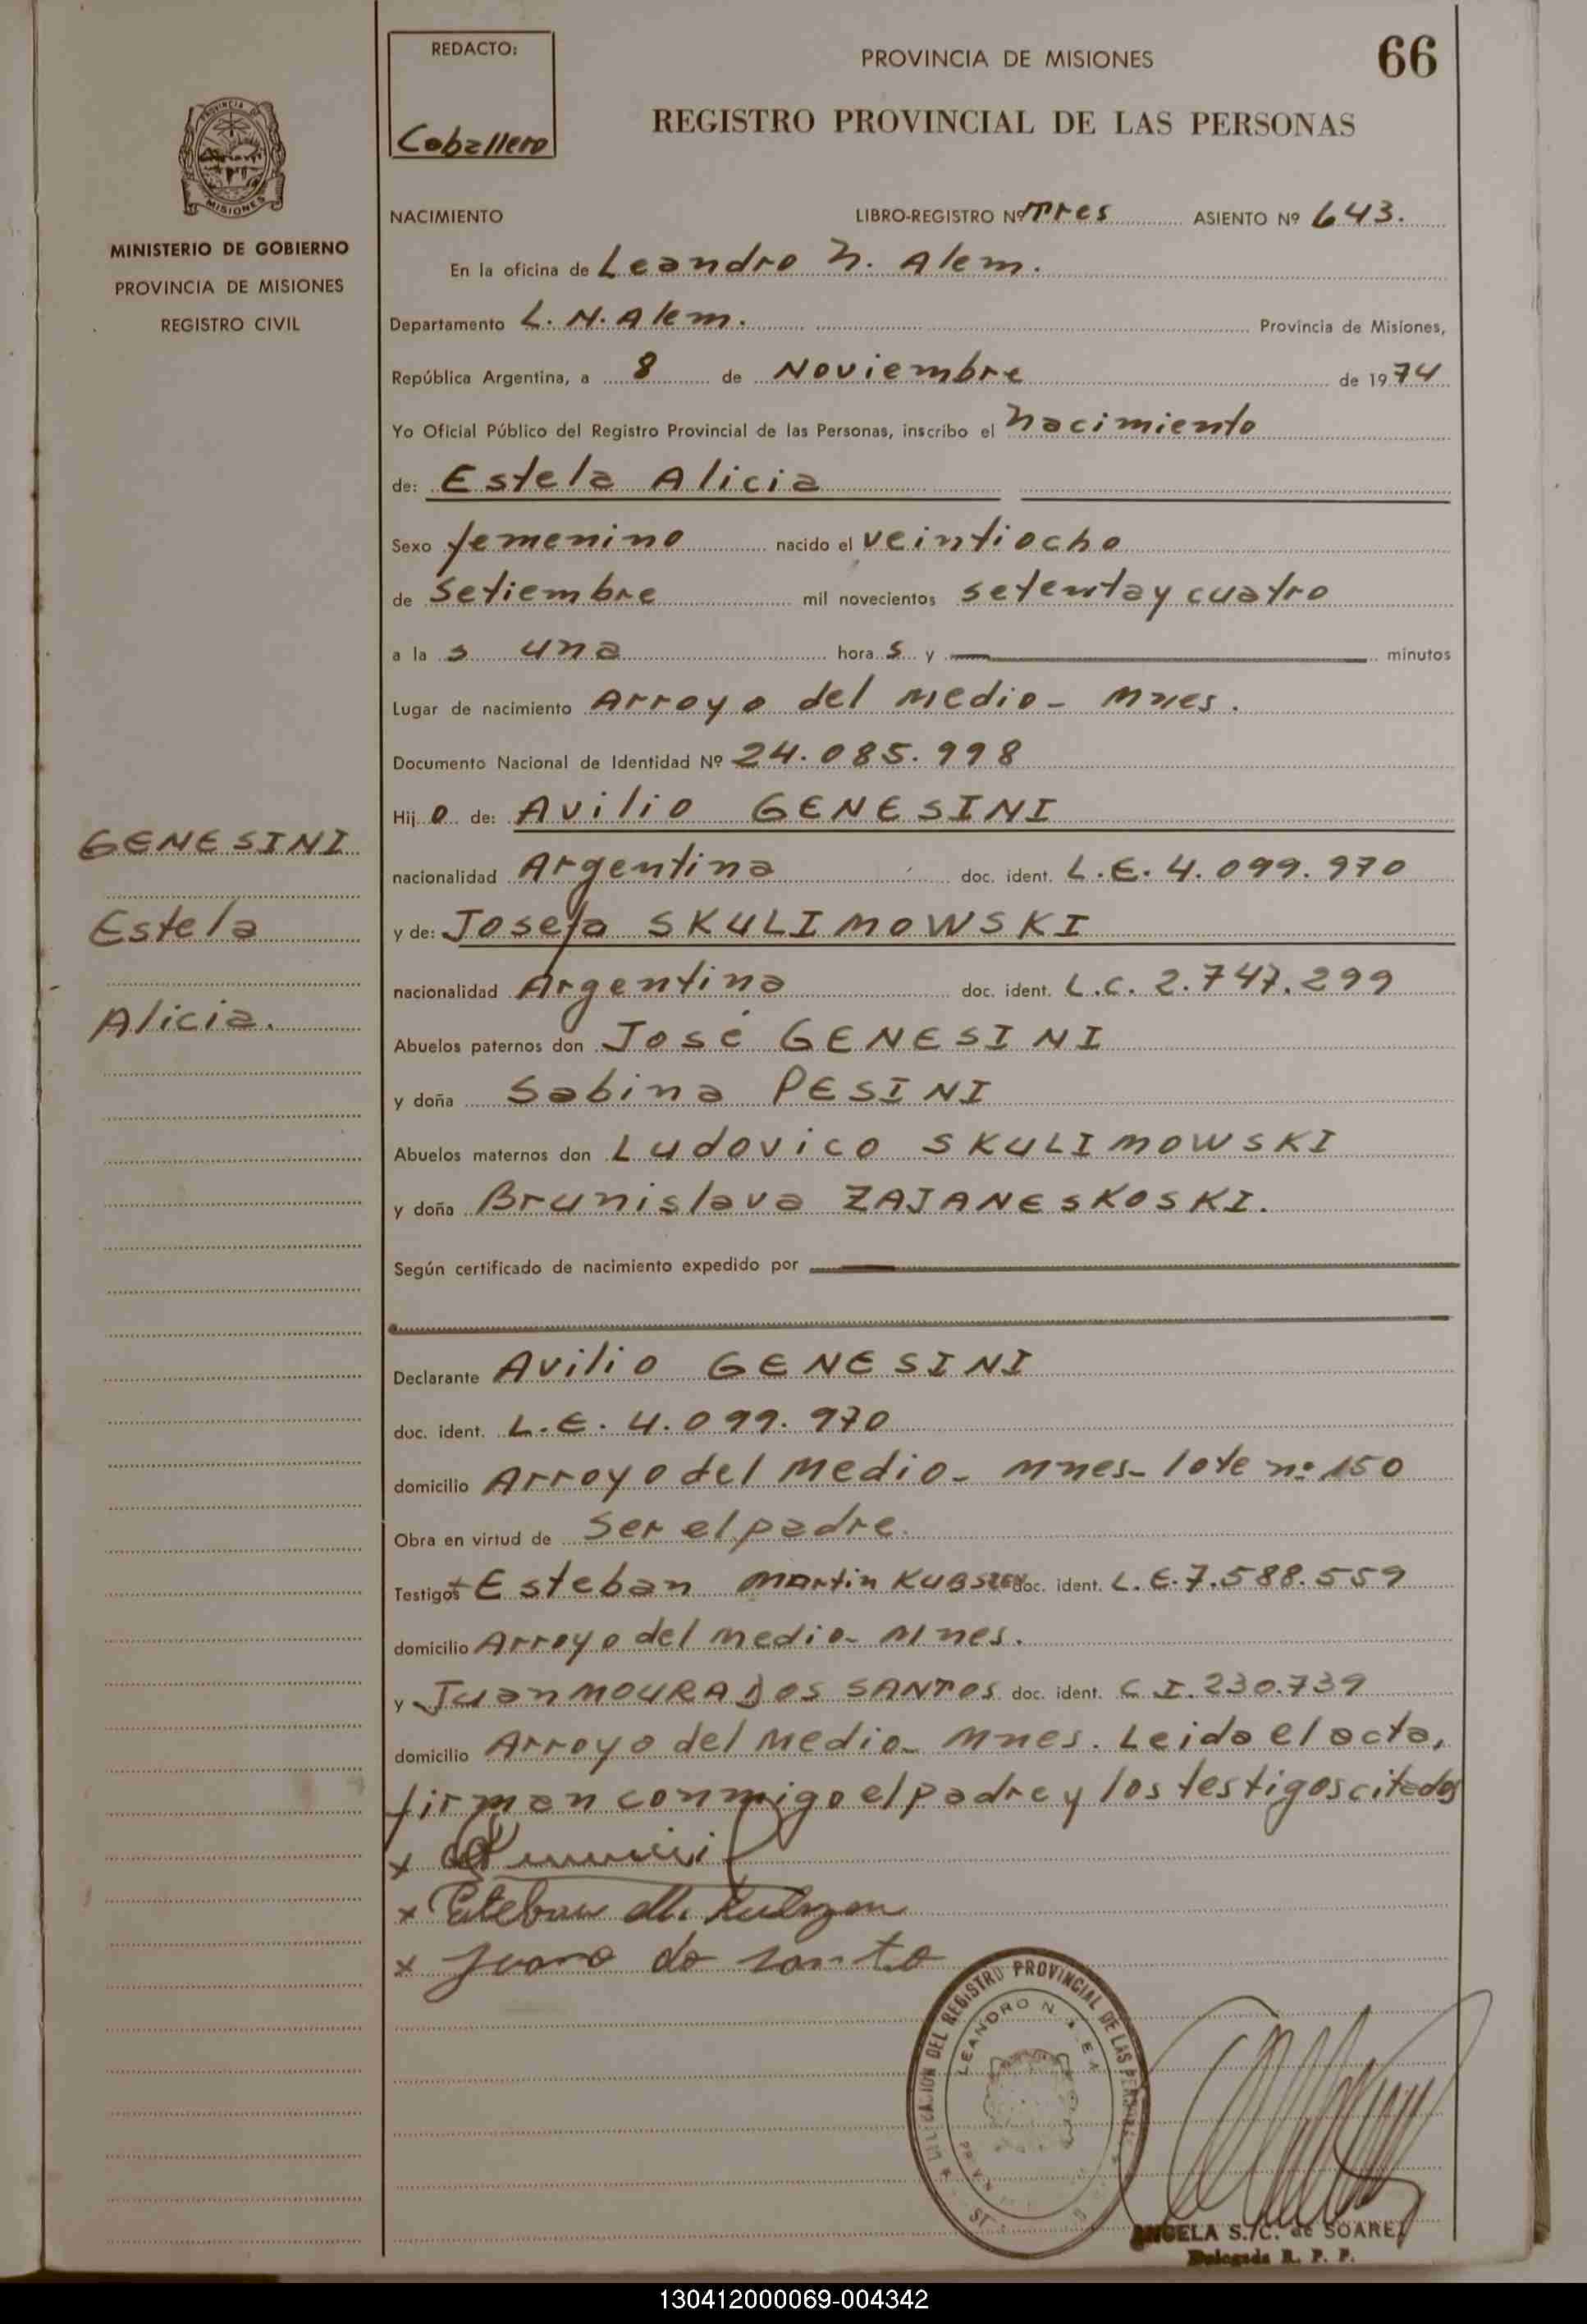 REDACTO:
Caballero
PROVINCIA DE MISIONES
66
REGISTRO PROVINCIAL DE LAS PERSONAS
PROVINCIA DE
MISIONES
MINISTERIO DE GOBIERNO
PROVINCIA DE MISIONES
REGISTRO CIVIL
NACIMIENTO LIBRO-REGISTRO Nº Tres ASIENTO Nº 643.
En la oficina de Leandro N. Alem.
Departamento L. N. Alem. Provincia de Misiones,
República Argentina, a 8 de Noviembre de 1974
Yo Oficial Público del Registro Provincial de las Personas, inscribo el nacimiento
de: Estela Alicia
Sexo femenino nacido el veintiocho
de Setiembre mil novecientos setenta y cuatro
a la s una hora s y minutos
Lugar de nacimiento Arroyo del Medio - Mnes.
Documento Nacional de Identidad Nº 24.085.998
Hij o de: Avilio GENESINI
nacionalidad Argentina doc. ident. L.E. 4.099.970
y de: Josefa SKULIMOWSKI
nacionalidad Argentina doc. ident. L.C. 2.747.299
Abuelos paternos don José GENESINI
y doña Sabina PESINI
Abuelos maternos don Ludovico SKULIMOWSKI
y doña Brunislava ZAJANESKOSKI.
Según certificado de nacimiento expedido por
Declarante Avilio GENESINI
doc. ident. L.E. 4.099.970
domicilio Arroyo del Medio - Mnes - lote nº 150
Obra en virtud de Ser el padre.
Testigos Esteban Martin doc. ident. L.E. 7.588.559
domicilio Arroyo del Medio - Mnes.
y Juan MOURA DOS SANTOS doc. ident. C.I. 230.739
domicilio Arroyo del Medio - Mnes. Leida el acta,
firman conmigo el padre y los testigos citados
GENESINI
Estela
Alicia.
x
x Esteban M.
x Juan do santo
DEL REGISTRO PROVINCIAL DE LAS
LEANDRO N.
ANGELA S. C. de SOAREZ
Delegada R. P. P.
130412000069-004342